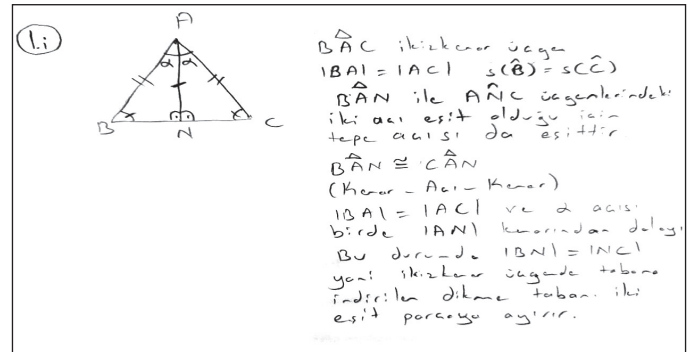 1.i
A
α α
B N C
BAC ikizkenar üçgen
|BA| = |AC| s(B̂) = s(Ĉ)
BAN ile ANC üçgenlerindeki
iki açı eşit olduğu için
tepe açısı da eşittir
BAN ≅ CAN
(Kenar - Açı - Kenar)
|BA| = |AC| ve α açısı
birde |AN| kenarından dolayı
Bu durumda |BN| = |NC|
yani ikizkenar üçgende tabana
indirilen dikme tabanı iki
eşit parçaya ayırır.